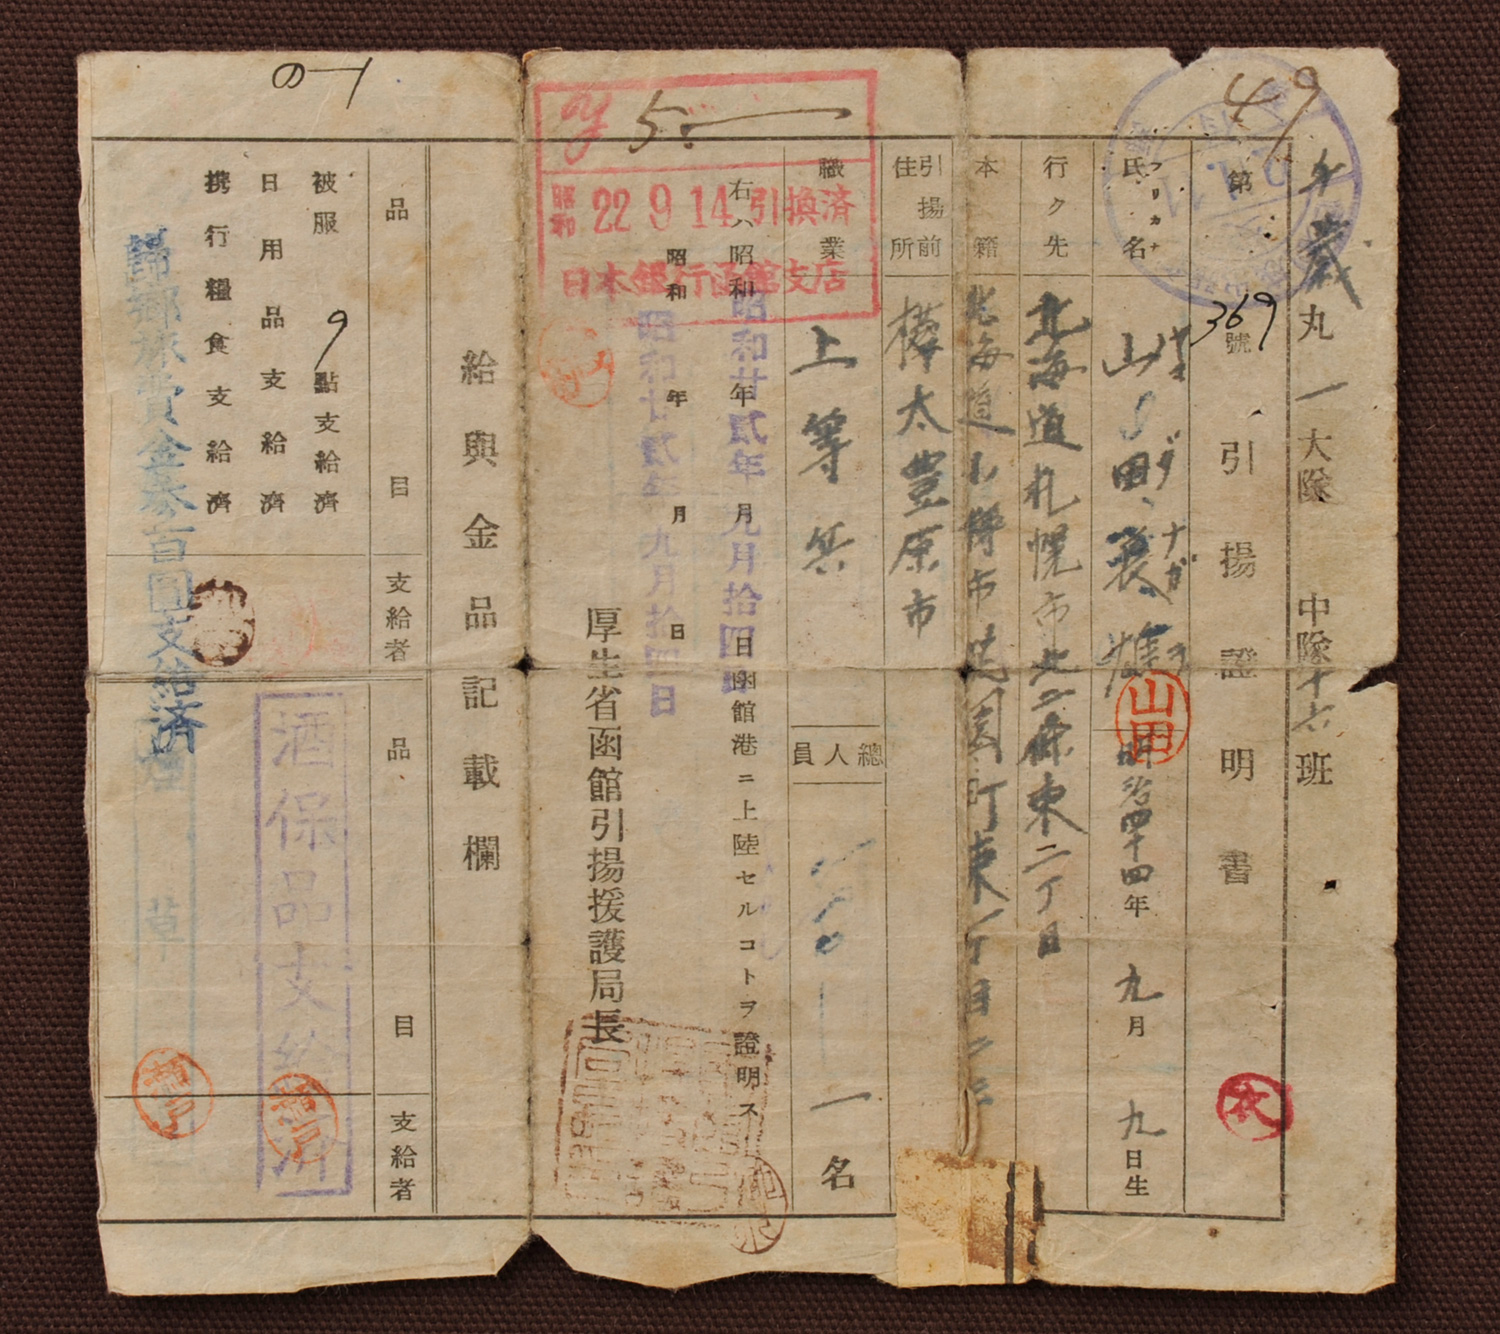 49
千歳丸 一大隊 中隊十六班
第369號 引揚證明書
フリカナ
氏名 山田 ヤマダ
山田
明治四十四年 九月 九日生
行ク先 北海道札幌市北二條東二丁目
本籍 北海道小樽市花園町東一丁目
引揚前住所 樺太豊原市
職業 上等兵
總人員 一名
5.—
昭和 22 9 14 引換済
日本銀行函館支店
右ハ昭和 年 月 日函館港ニ上陸セルコトヲ證明ス
昭和廿貳年九月拾四日
昭和 年 月 日
昭和廿貳年九月拾四日
厚生省函館引揚援護局長
給與金品記載欄
品 目 支給者 品 目 支給者
被服 9 點支給濟
日用品支給濟
携行糧食支給濟
歸鄉旅費金参百圓支給済
酒保品支給済
衣